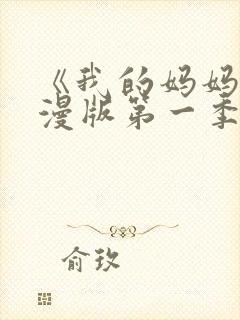 《我的妈妈
漫版第一季
俞玖